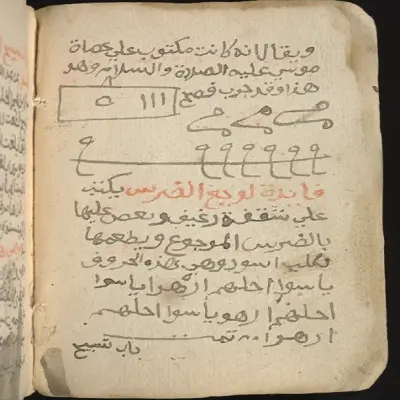 ويقال انه كانت مكتوب على عصاة
موسى عليه الصلاة والسلام وهو
هذا وقد جرب فصح
ااا ه
فايدة لوجع الضرس يكتب
على شقفة رغيف ويعض عليها
بالضرس الموجوع ويطعمها
لكلب اسود وهى هذه الحروف
ياسوا احلهم ارهوا ياسوا
احلهم ارهو ياسوا احلهم
ارهوا تمت
باب